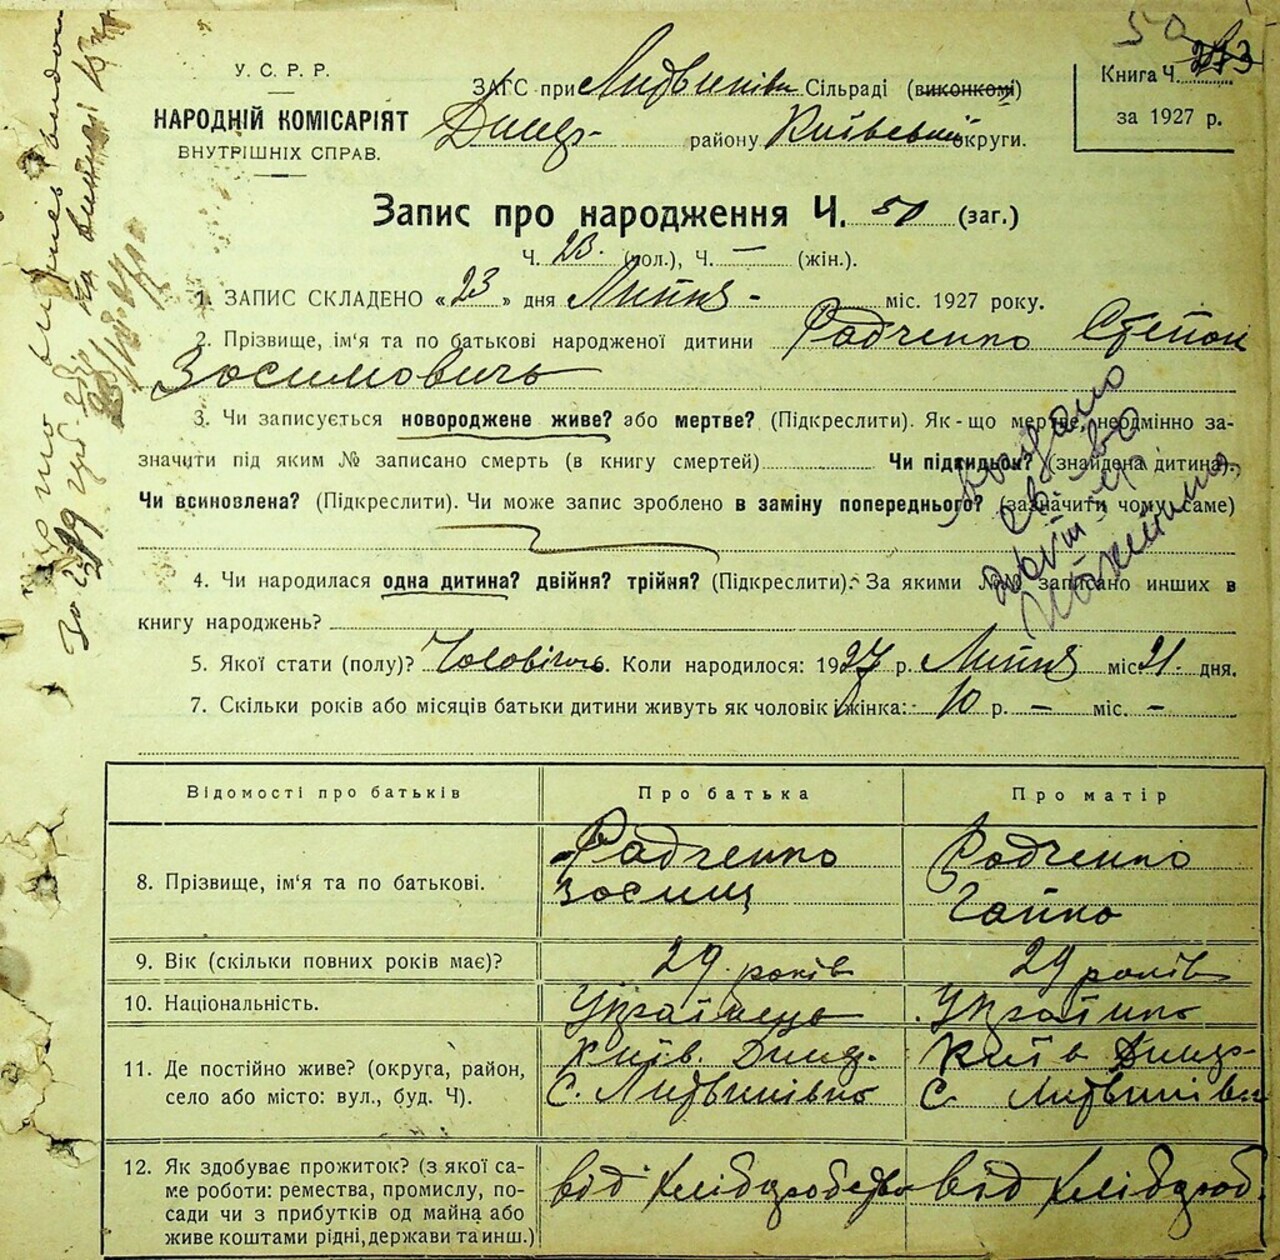 50
У. С. Р. Р.
НАРОДНІЙ КОМІСАРІЯТ
ВНУТРІШНІХ СПРАВ.
ЗАГС при Литвинівск Сільраді (виконкомі)
Димер- району Київській округи.
Книга Ч. 273
за 1927 р.
Запис про народження Ч. 50 (заг.)
Ч. 23. (пол.), Ч. — (жін.).
1. ЗАПИС СКЛАДЕНО «23» дня Липня - міс. 1927 року.
2. Прізвище, ім'я та по батькові народженої дитини Радченко Степан
Зосимовичь
3. Чи записується новороджене живе? або мертве? (Підкреслити). Як-що мертве, неодмінно за-
значити під яким № записано смерть (в книгу смертей) Чи підкидьок? (знайдена дитина).
Чи всиновлена? (Підкреслити). Чи може запис зроблено в заміну попереднього? (зазначити чому саме)
4. Чи народилася одна дитина? двійня? трійня? (Підкреслити). За якими №№ записано инших в
книгу народжень?
5. Якої статі (полу)? Чоловічоь. Коли народилося: 1927 р. Липня міс. 21. дня.
7. Скільки років або місяців батьки дитини живуть як чоловік і жінка: - 10 р. — міс. —
Відомості про батьків Про батька Про матір
8. Прізвище, ім'я та по батькові. Радченко Зосим Радченко Гапка
9. Вік (скільки повних років має)? 29 років 29 років
10. Національність. Українець Українка
11. Де постійно живе? (округа, район, Київ. Димер. Київ Димер-
село або місто: вул., буд. Ч). С. Литвинівка С. Литвинівка
12. Як здобуває прожиток? (з якої са- від хліборобства від хлібороб.
ме роботи: ремества, промислу, по-
сади чи з прибутків од майна або
живе коштами рідні, держави та инш.)